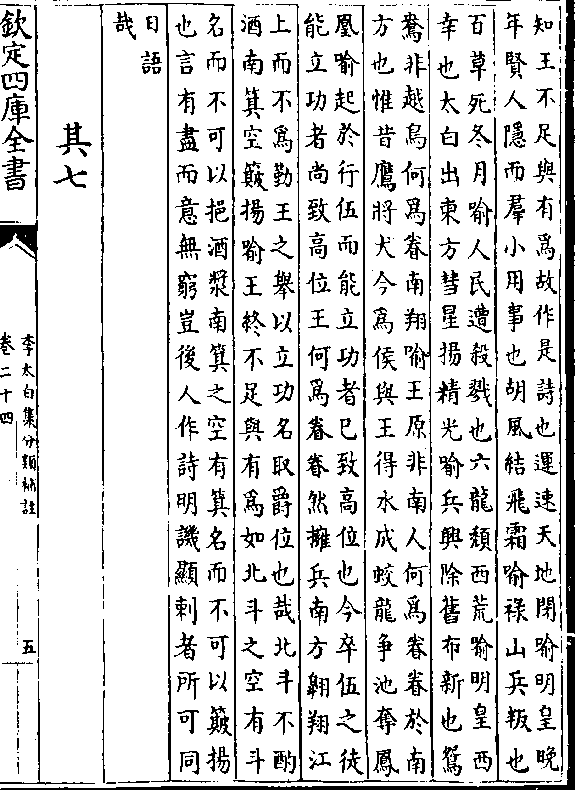 知王不足與有為故作是詩也運速天地閉喻明皇晚
年賢人隱而羣小用事也胡風結飛霜喻祿山兵叛也
百草死冬月喻人民遭殺戮也六龍頹西荒喻明皇西
幸也太白出東方彗星揚精光喻兵興除舊布新也鴛
鴦非越鳥何爲眷南翔喻王原非南人何爲眷眷於南
方也惟昔鷹將犬今爲侯與王得水成蛟龍爭池奪鳳
凰喻起於行伍而能立功者已致高位也今卒伍之徒
能立功者尚致高位王何爲眷眷然擁兵南方翺翔江
上而不爲勤王之舉以立功名取爵位也哉北斗不酌
酒南箕空簸揚喻王終不足與有爲如北斗之空有斗
名而不可以挹酒漿南箕之空有箕名而不可以簸揚
也言有盡而意無窮豈後人作詩明譏顯刺者所可同
日語
哉
其七
欽定四庫全書
李太白集分類補註
卷二十四
五